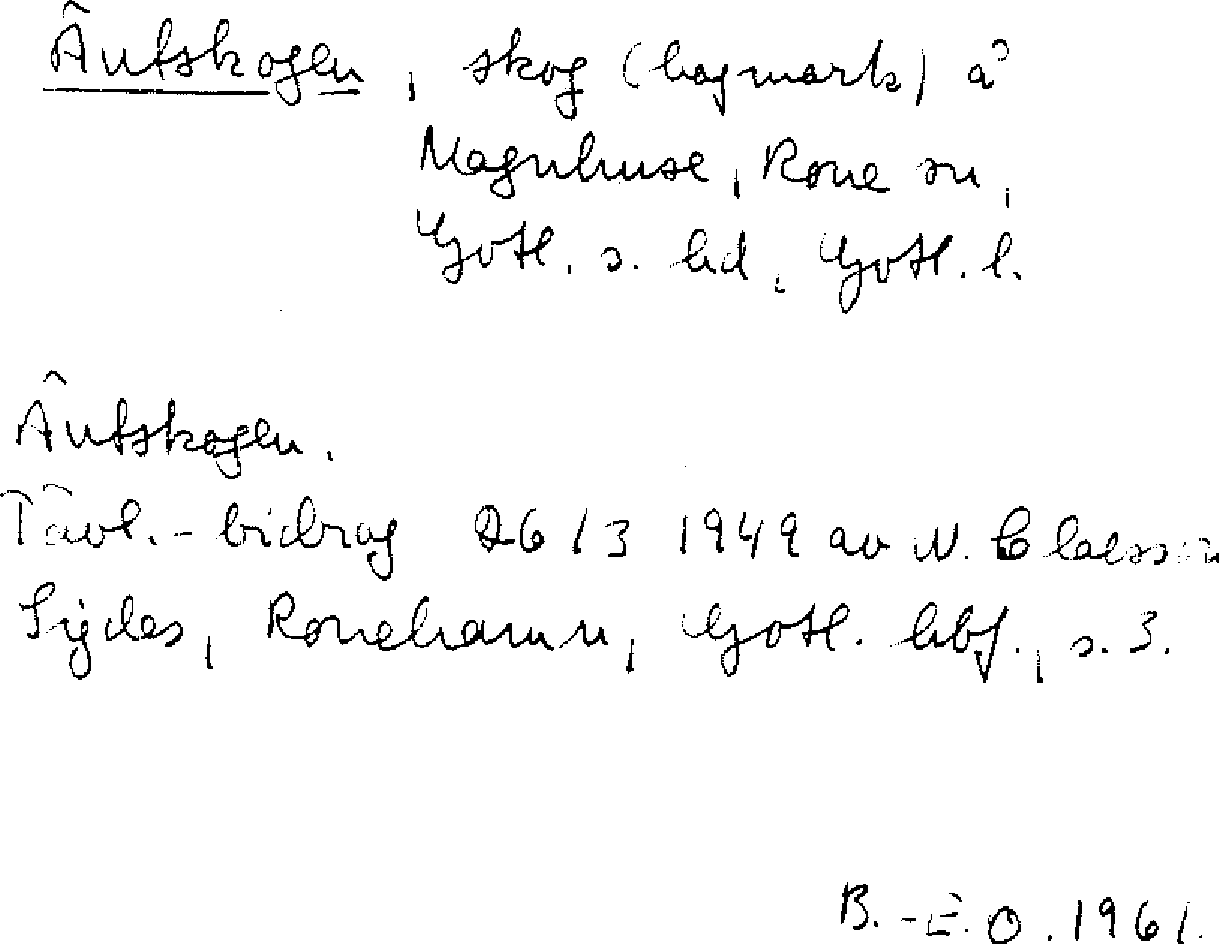 Äutskogen, skog (hagmark) å
Magnhuse, Rone sn,
Gotl. s. hd, Gotl. l.
Äutskogen.
Tävl.-bidrag 26/3 1949 av N. Claesson
Sigdes, Ronehamn, Gotl. hbf., s. 3.
B.-E. O. 1961.